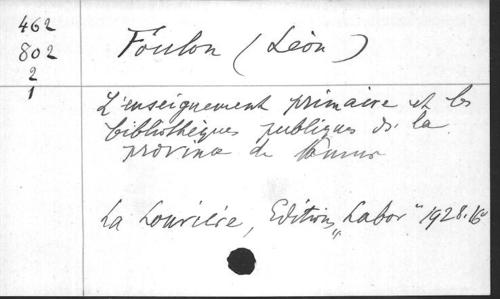 462
802
2
1
Foulon (Léon)
L'enseignement primaire et les
bibliothèques publiques de la
province de Namur
La Louvière, Editions „Labor" 1928. 16°